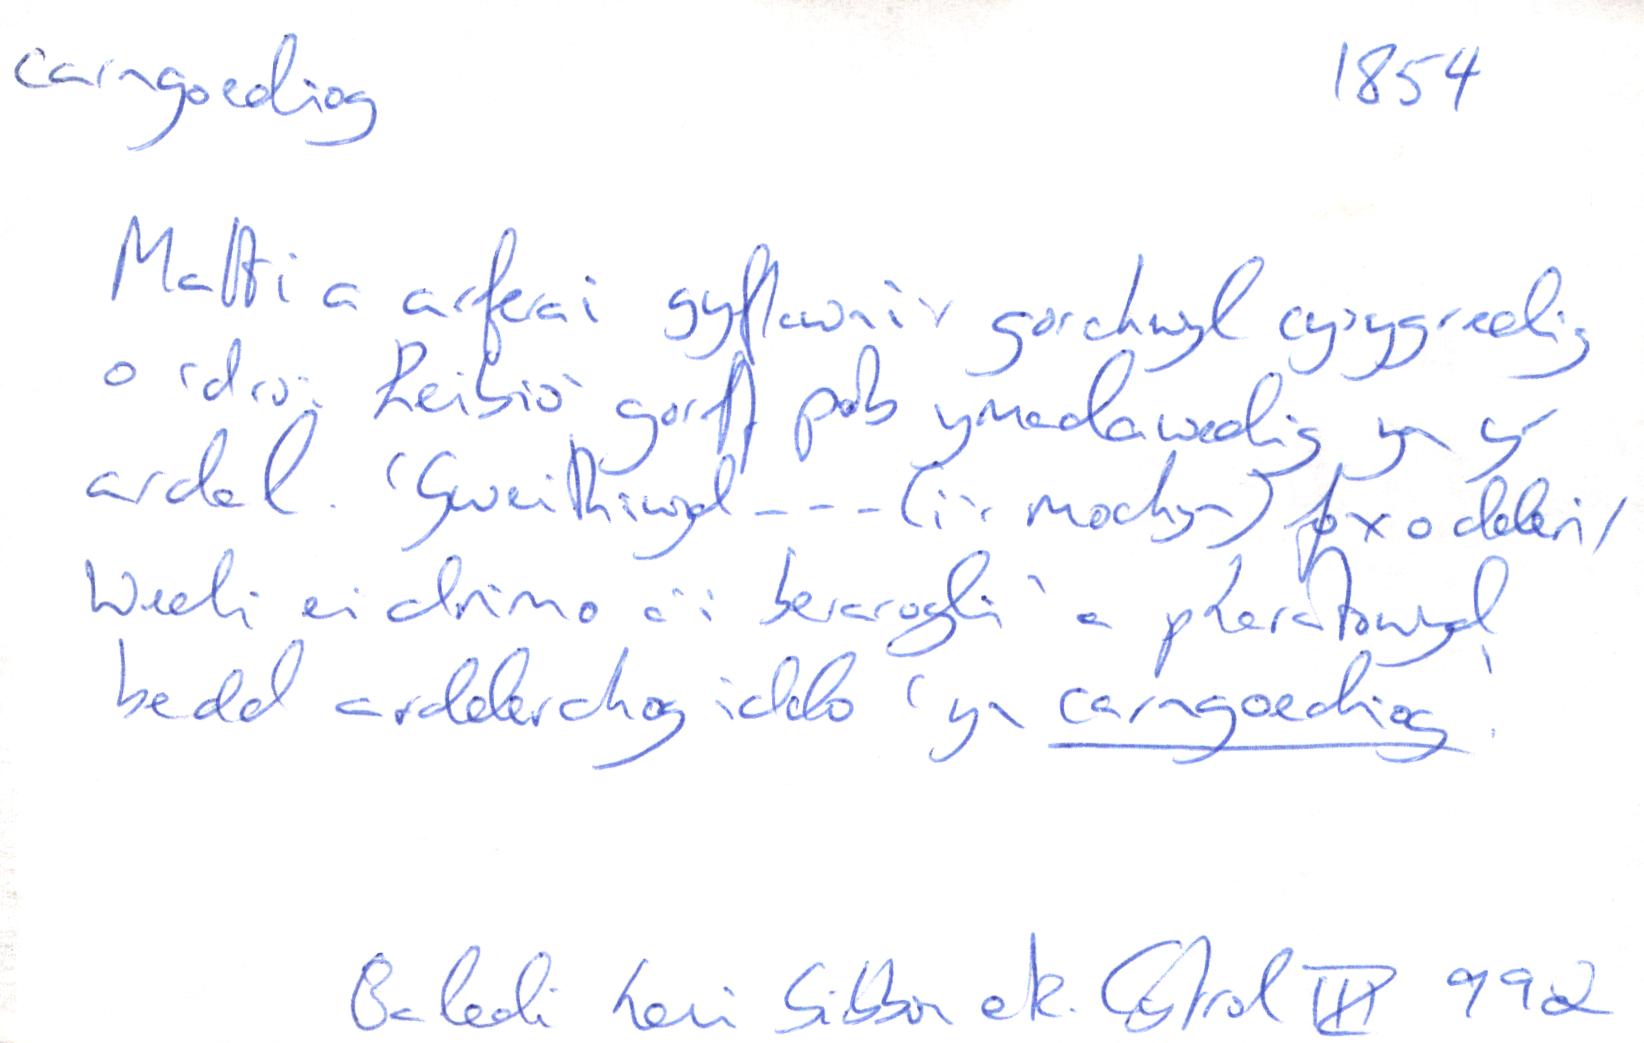 carngoediog 1854
Matti a arferai gyflawni'r gorchwyl cysygredig
o 'droi heibio' gorff pob ymadawedig yn yr
ardal. 'Gweithiwyd --- (i'r mochyn) o dderi/
Wedi ei drimo a'i berarogli' a pharatowyd
bedd ardderchog iddo 'yn carngoediog'.
Baledi Levi Gibbon etc. Cystrol III 992